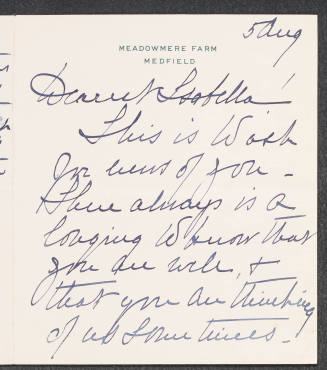 5 Aug
MEADOWMERE FARM
MEDFIELD
Dearest Isabella!
This is to ask
for news of you -
There always is a
longing to know that
you are well, &
that you are thinking
of us sometimes -